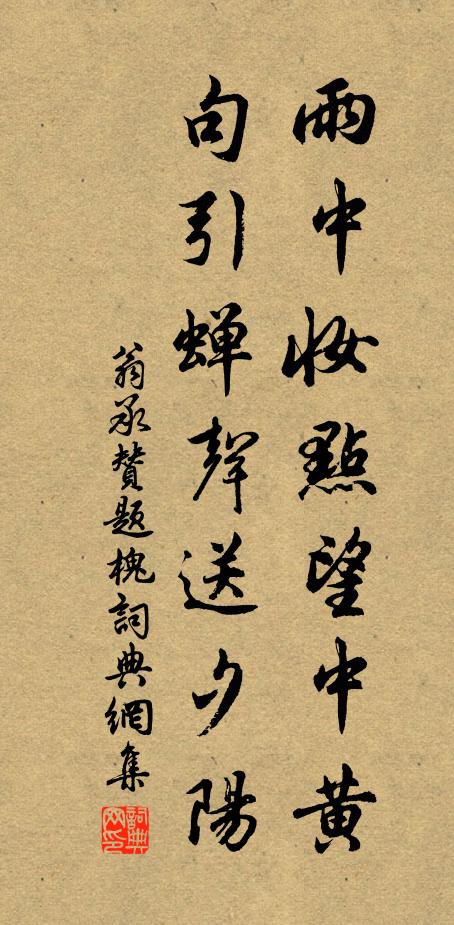 雨中妝點望中黃
句引蟬聲送夕陽
翁承贊題槐詞典網集
詞典網印